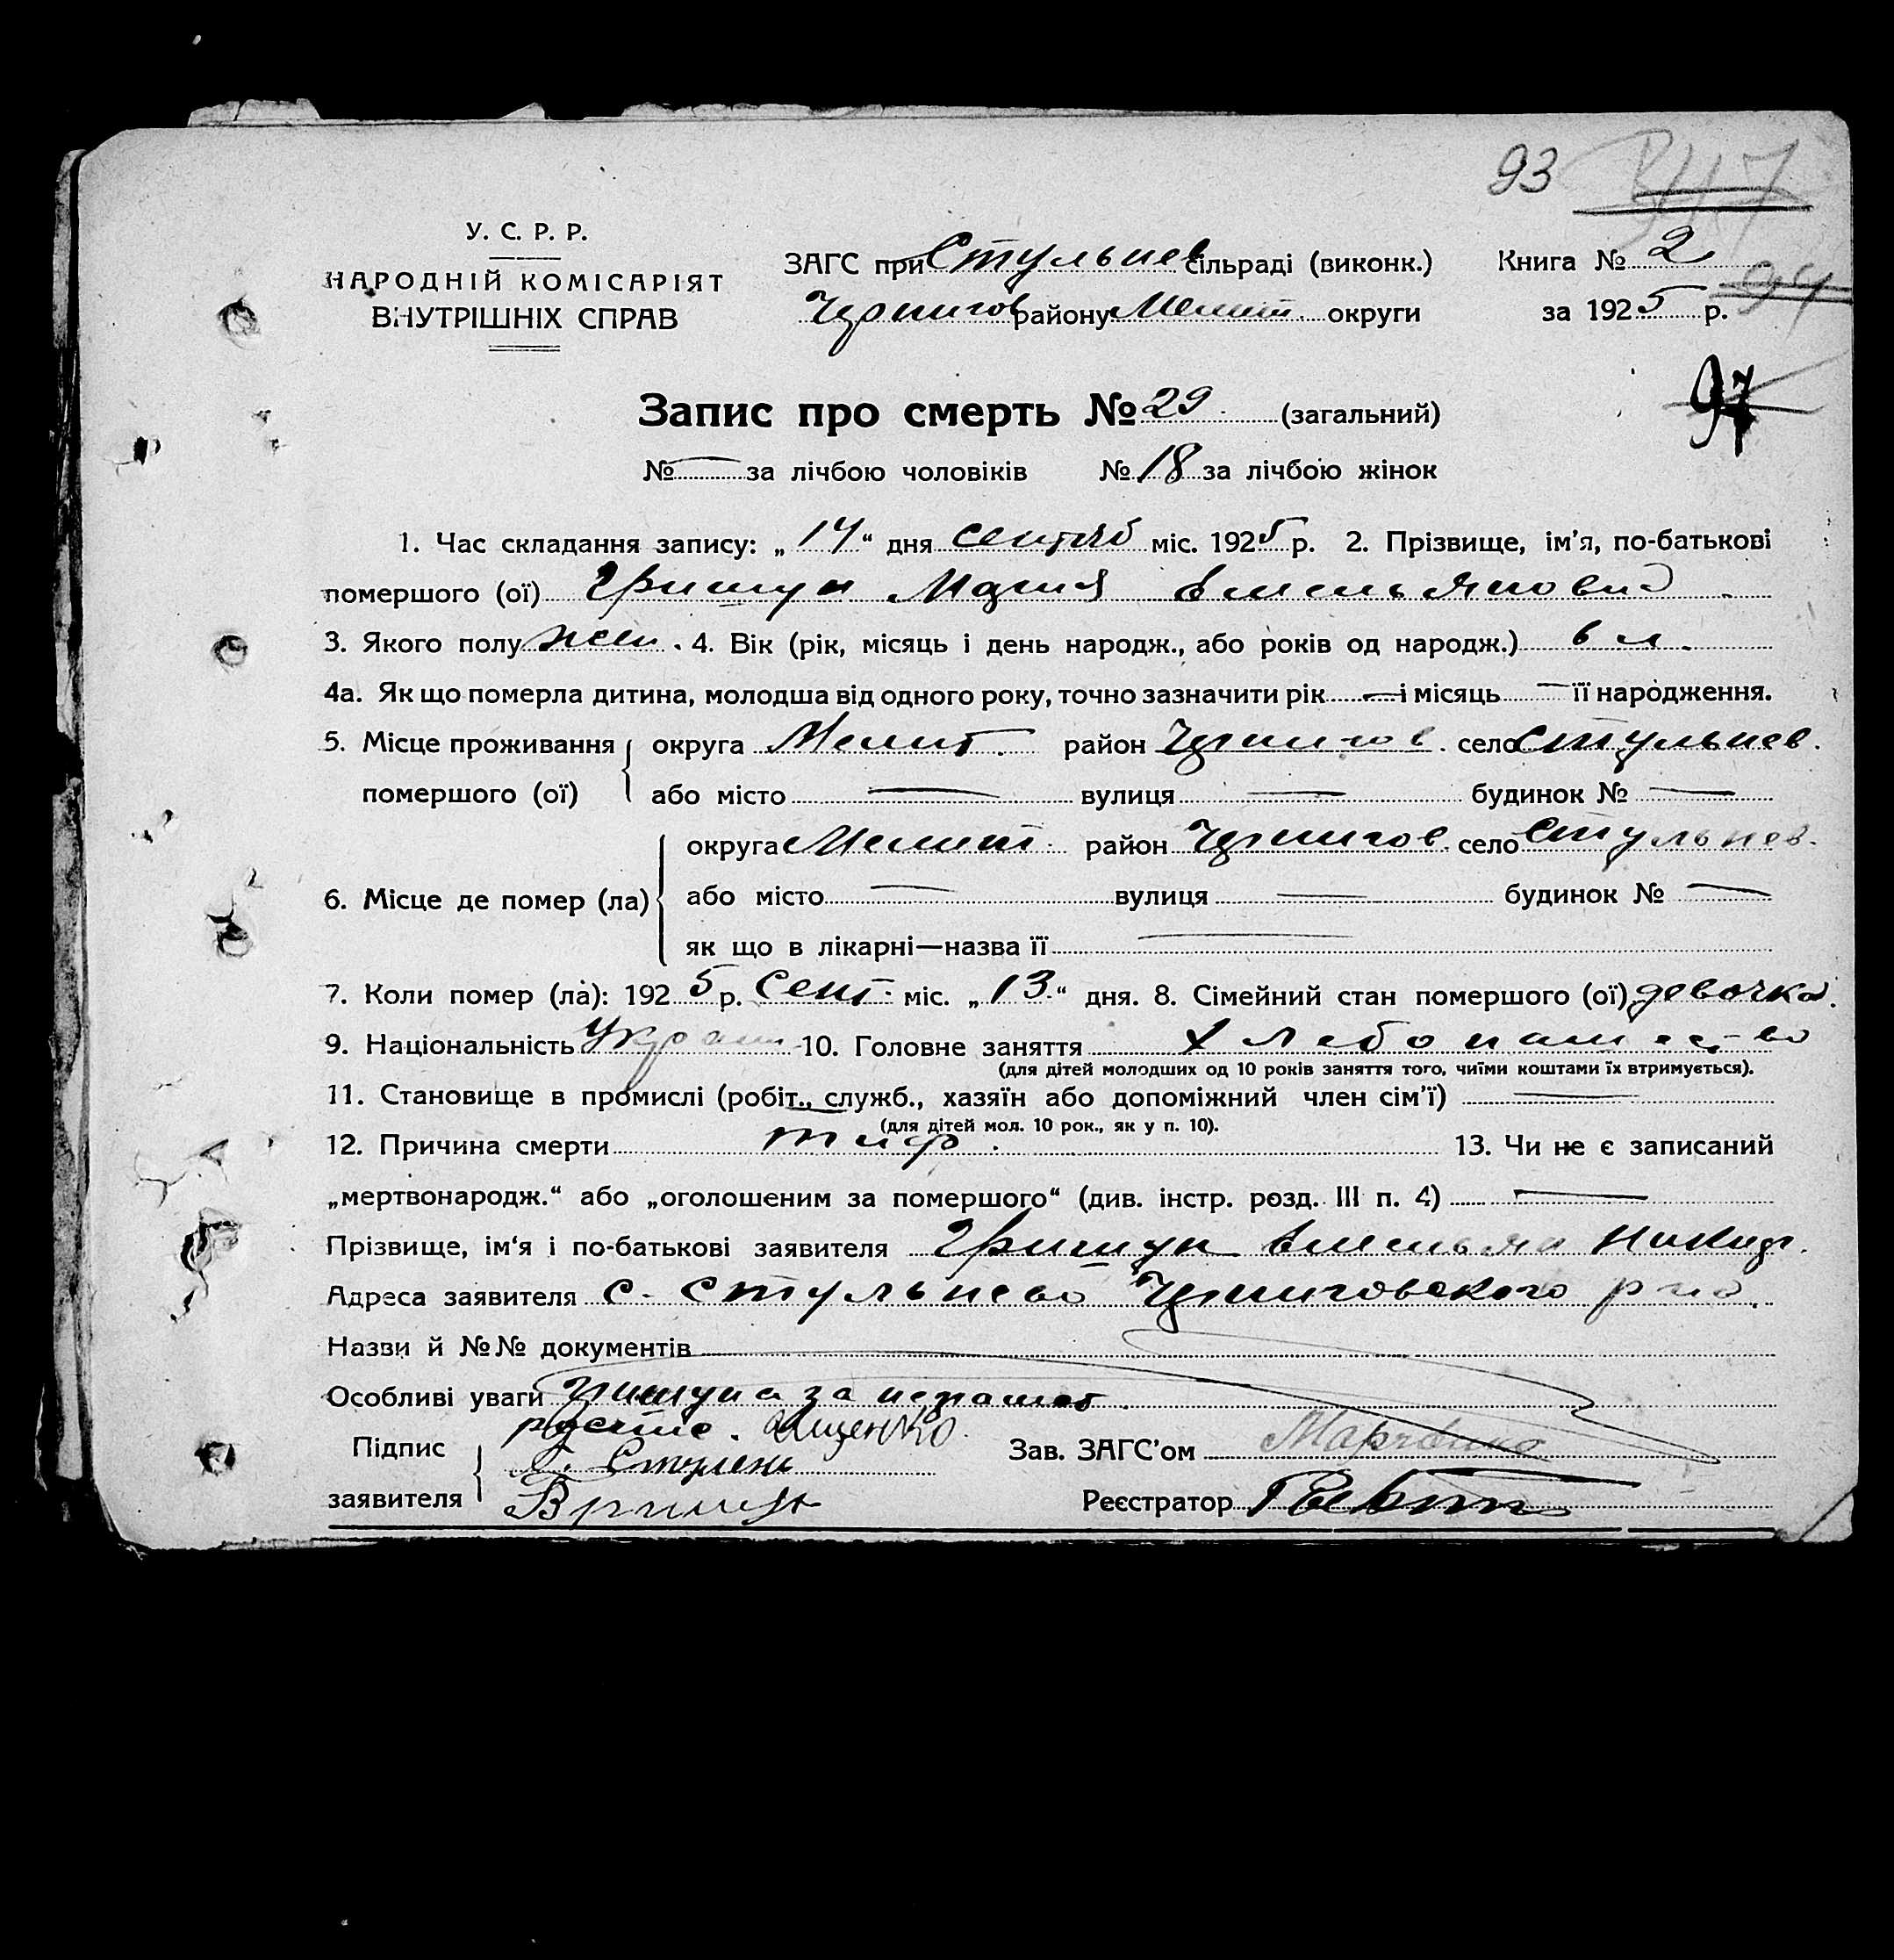 93 347
У. С. Р. Р.
НАРОДНІЙ КОМІСАРІЯТ
ВНУТРІШНІХ СПРАВ
ЗАГС при Стульнев сільраді (виконк.)
Чернигов району Мелит. округи
Книга № 2
за 1925 р.
94
97
Запис про смерть № 29. (загальний)
№ — за лічбою чоловіків № 18 за лічбою жінок
1. Час складання запису: „14“ дня сентяб міс. 1925 р. 2. Прізвище, ім'я, по-батькові
помершого (ої) Гришун Мария Емельяновна
3. Якого полу жен. 4. Вік (рік, місяць і день народж., або років од народж.) 6 л.
4а. Як що померла дитина, молодша від одного року, точно зазначити рік — і місяць — її народження.
5. Місце проживання помершого (ої) округа Мелит. район Чернигов. село Стульнев.
або місто — вулиця — будинок № —
6. Місце де помер (ла) округа Мелит. район Чернигов. село Стульнев.
або місто — вулиця — будинок № —
як що в лікарні—назва її —
7. Коли помер (ла): 1925 р. Сент. міс. „13.“ дня. 8. Сімейний стан помершого (ої) девочка.
9. Національність Украин 10. Головне заняття хлебопашество
(для дітей молодших од 10 років заняття того, чиїми коштами їх втримується).
11. Становище в промислі (робіт., служб., хазяїн або допоміжний член сім'ї) —
(для дітей мол. 10 рок., як у п. 10).
12. Причина смерти тиф. 13. Чи не є записаний
„мертвонародж.“ або „оголошеним за помершого“ (див. інстр. розд. III п. 4) —
Прізвище, ім'я і по-батькові заявителя Гришун Емельян Никит.
Адреса заявителя с. Стульнево Черниговского р-на.
Назви й №№ документів
Особливі уваги Гришуна за неграмот
росписс. Ищенко.
Підпис
заявителя
Зав. ЗАГС'ом Марченко
Реєстратор